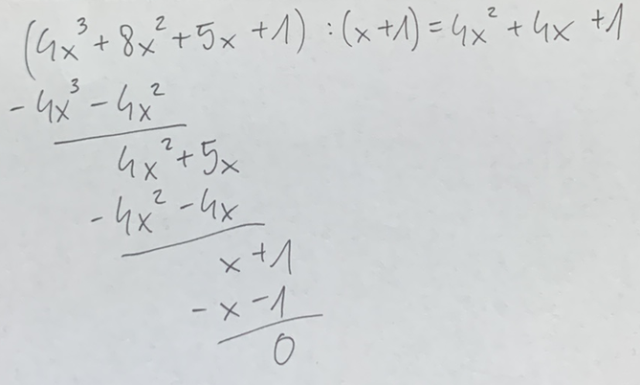 (4x³ + 8x² + 5x + 1) : (x + 1) = 4x² + 4x + 1
- 4x³ - 4x²
4x² + 5x
- 4x² - 4x
x + 1
- x - 1
0